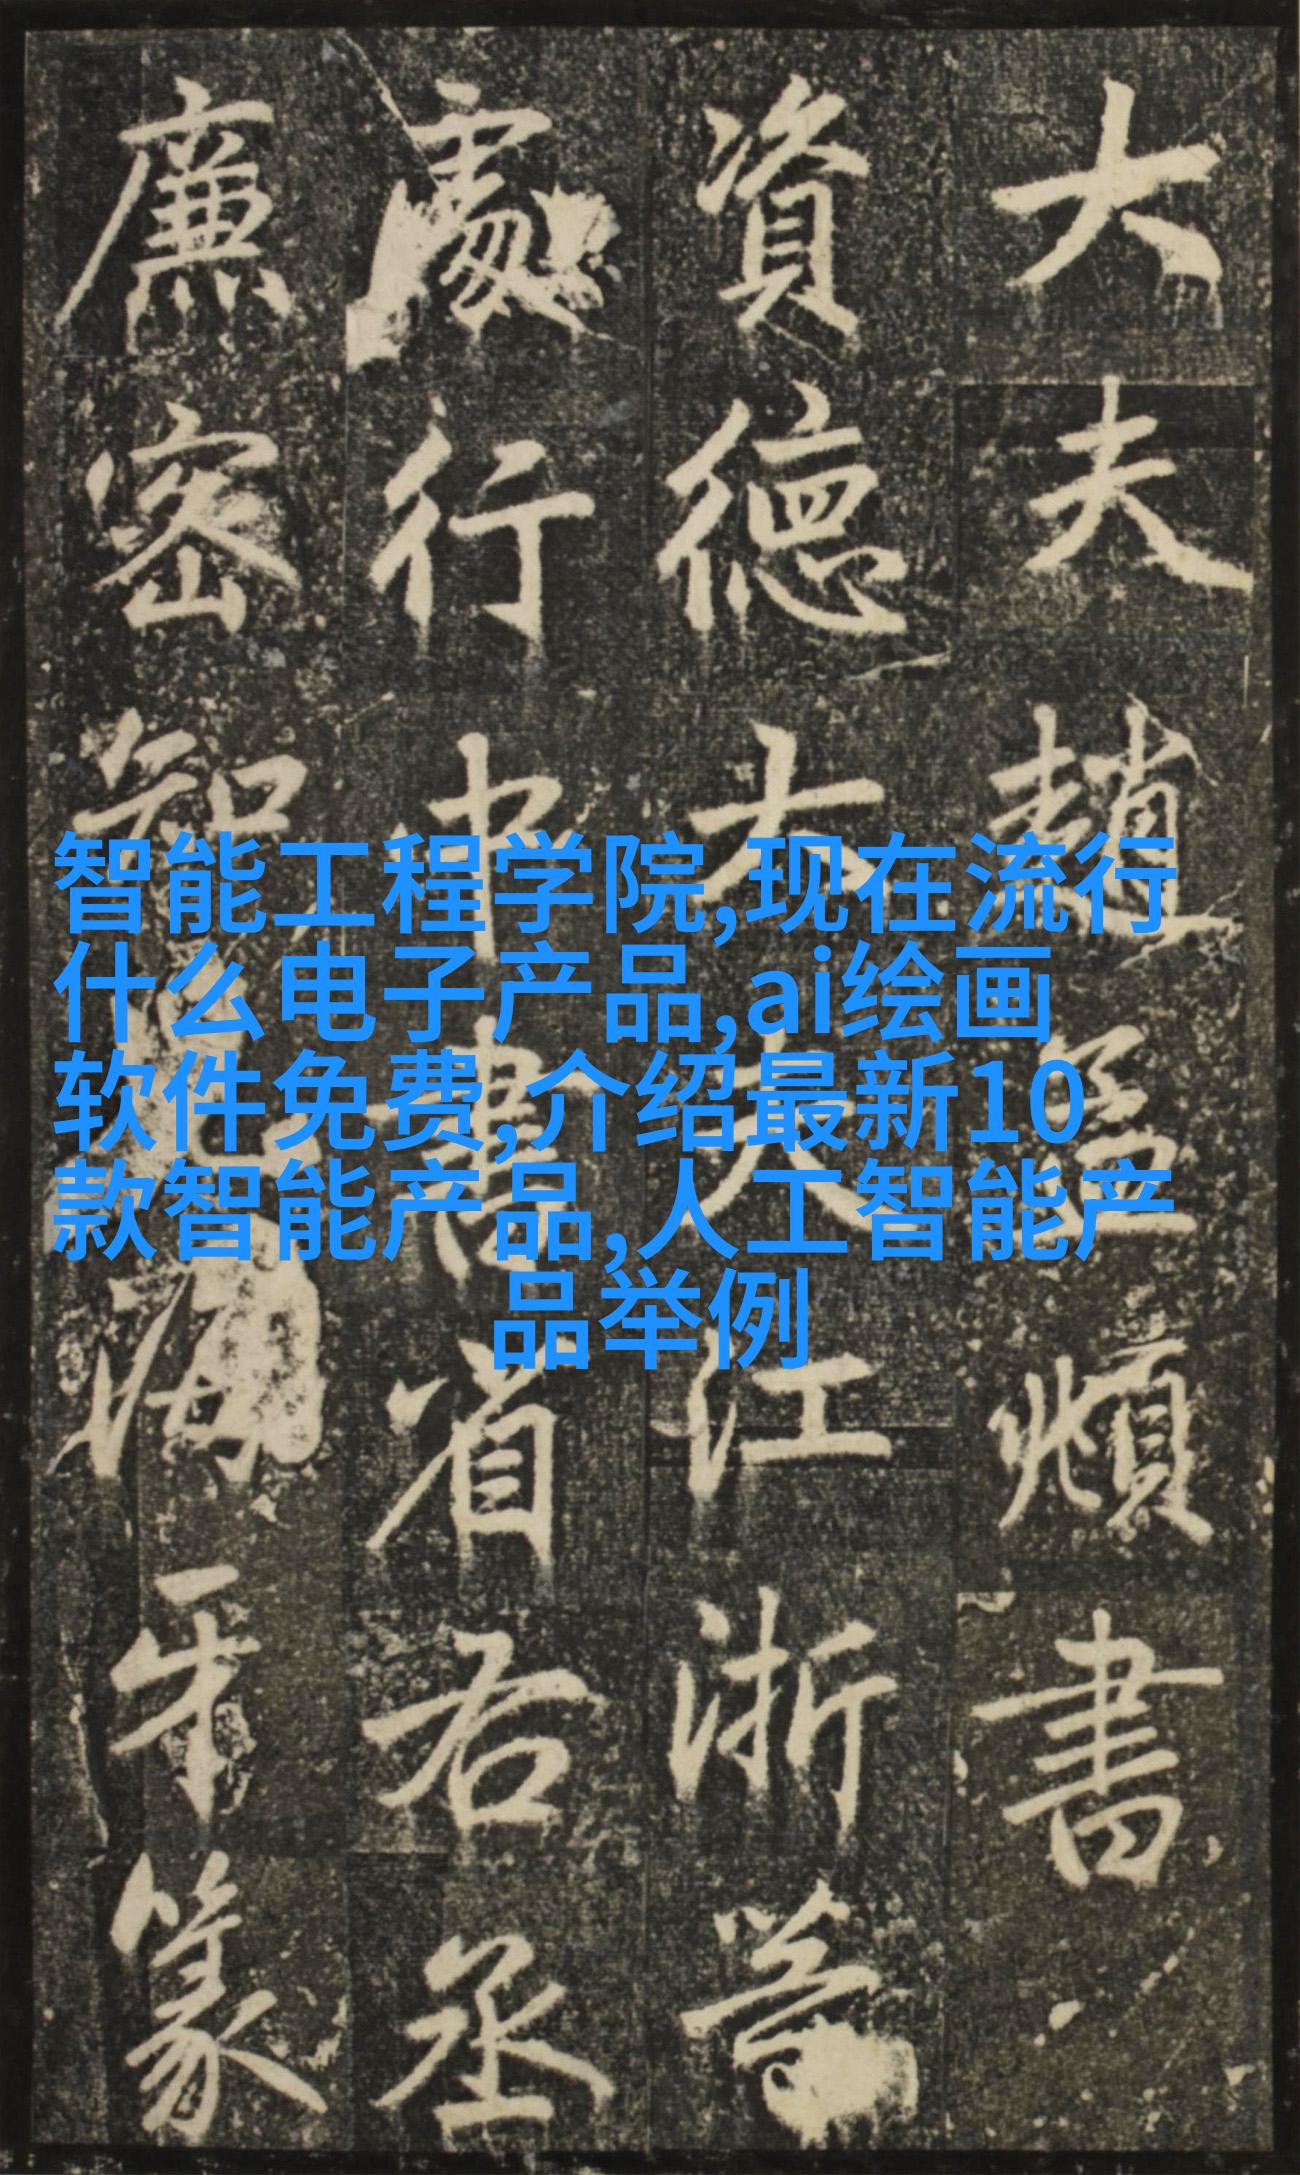 大夫趙孟頫書
資德大夫江浙等
處行中書省右丞
廉密知海牙篆
智能工程学院,现在流行
什么电子产品,ai绘画
软件免费,介绍最新10
款智能产品,人工智能产
品举例